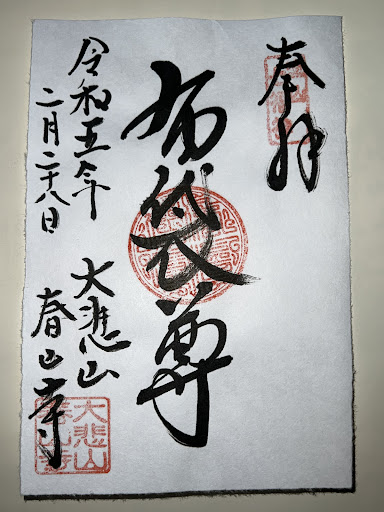 奉拝
布袋尊
大悲山
春山寺
令和五年
二月二十八日
大悲山
春山寺